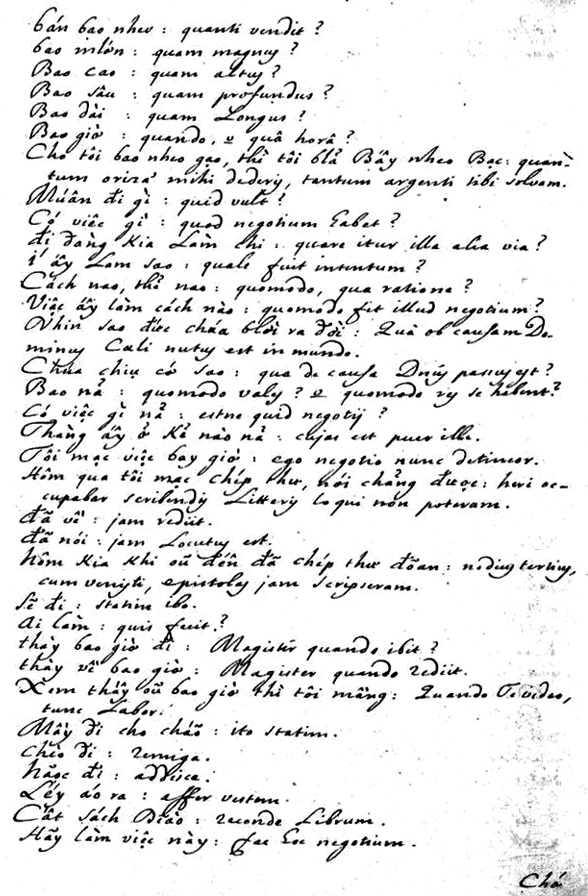 bán bao nheo : quanti vendit ?
bao nlớn : quam magnus ?
Bao cao : quam altus ?
Bao sâu : quam profundus ?
Bao dài : quam Longus ?
Bao giờ : quando, quâ horâ ?
Cho tôi bao nheo gạo, thì tôi blả Bấy nheo Bạc : quan-
tum oriza mihi dederis, tantum argenti tibi solvam.
Muấn đi gì : quid vult ?
Có viêc gì : quod negotium habet ?
đi đàng Kia Làm chi : quare itur illa alia via ?
í ấy Lam sao : quale fuit intentum ?
Cách nao, thể nao : quomodo, qua ratione ?
Viêc ấy làm cách nào : quomodo fit illud negotium ?
Nhin sao đức chúa blời ra đời : Quâ ob causam Do-
minus Cæli natus est in mundo.
Chúa chịu có sao : qua de causa Dnûs passus est ?
Bao nả : quomodo vales ? quomodo res se habent ?
Có viêc gì nả : estne quid negotij ?
Thàng ấy ở Kẻ nào nả : cujas est puer ille.
Tôi mạc viêc bay giờ : ego negotio nunc detineor.
Hôm qua tôi mạc chép thư, nói chảng được : heri oc-
cupabar scribendis Litteris loqui non poteram.
đã về : jam rediit.
đã nói : jam Locutus est.
hôm Kia Khi oũ đến đã chép thư đoạn : nudius tertius,
cum venisti, epistolas jam scripseram.
sẽ đi : statim ibo.
ai làm : quis fecit ?
thày bao giờ đi : Magister quando ibit ?
thày về bao giờ : Magister quando rediit.
Xem thấy oũ bao giờ thì tôi mầng : Quando Te video,
tunc Lætor.
Mầy đi cho chảõ : ito statim.
chèo đi : remiga.
hãoc đi : addisce.
Léy áo ra : affer vestem.
Cất sách Đạo : reconde Librum.
Hãy làm viêc này : fac hoc negotium.
Chá